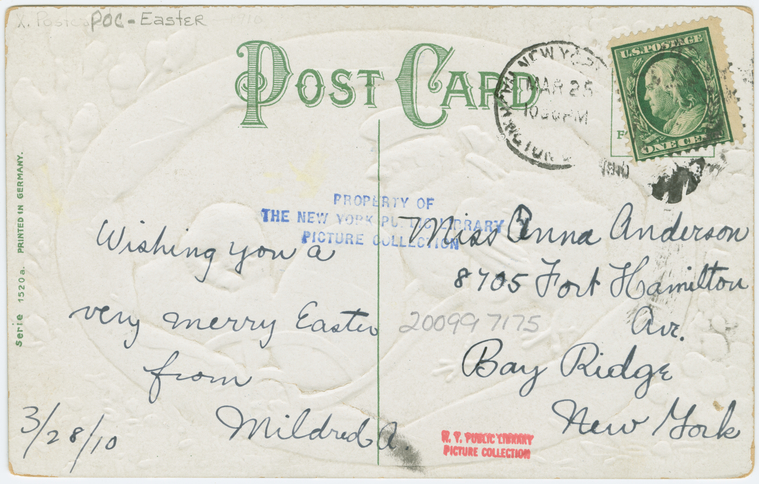 POC - Easter
POST CARD
NEW YORK
MAR 25
PM
U.S. POSTAGE
ONE CENT
Serie 1520a. PRINTED IN GERMANY.
PROPERTY OF
THE NEW YORK PUBLIC LIBRARY
PICTURE COLLECTION
Wishing you a
very merry Easter
from
Mildred A.
3/28/10
Miss Anna Anderson
8705 Fort Hamilton
Av.
Bay Ridge
New York
200997175
N. Y. PUBLIC LIBRARY
PICTURE COLLECTION